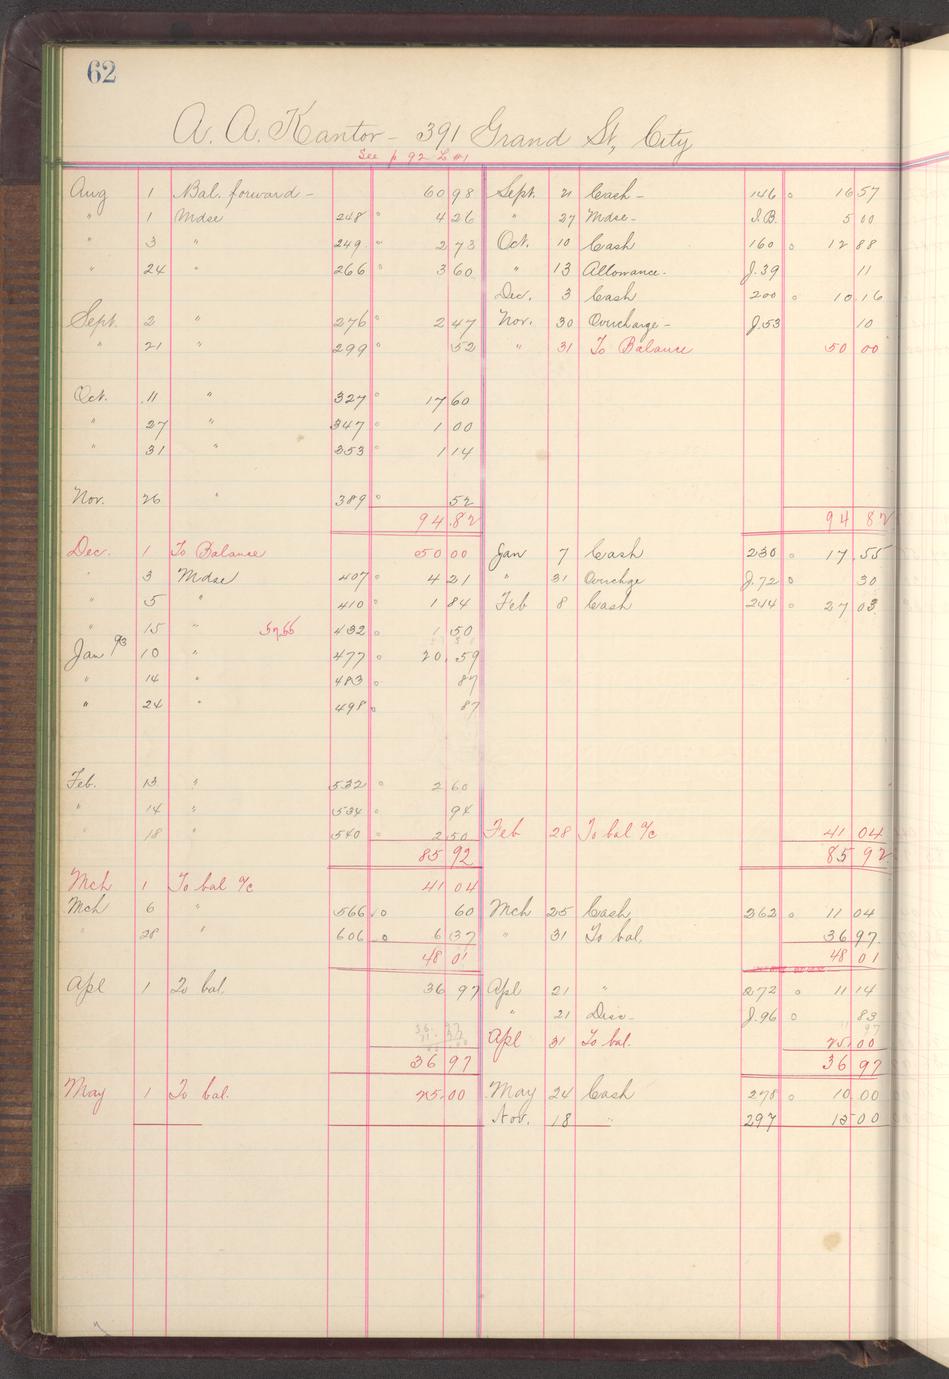 62
A. A. Kantor - 391 Grand St, City
See p 92 L #1
Aug 1 Bal. forward - 60 98 Sept. 21 Cash - 146 0 16 57
" 1 Mdse 248 0 4 26 " 27 Mdse - I.B. 5 00
" 3 " 249 " 2 73 Oct. 10 Cash 160 0 12 88
" 24 " 266 0 3 60 " 13 Allowance. J.39 11
Dec. 3 Cash 200 0 10.16
Sept. 2 " 276 0 2 47 Nov. 30 Ovrcharge - J.53 10
" 21 " 299 0 52 " 31 To Balance 50 00
Oct. 11 " 327 0 17 60
" 27 " 347 0 1 00
" 31 " 353 0 1 14
Nov. 26 " 389 0 52
94.82 94 82
Dec. 1 To Balance 50 00 Jan 7 Cash 230 0 17.55
" 3 Mdse 407 0 4 21 " 31 Ovrchge J.72 0 30
" 5 " 410 0 1 84 Feb 8 Cash 244 0 27 03
" 15 " 432 0 1 50
Jan 93 10 " 477 0 20.59
" 14 " 483 0 87
" 24 " 498 0 87
Feb. 13 " 532 0 2 60
" 14 " 534 94
" 18 " 540 0 2 50 Feb 28 To bal a/c 41 04
85 92 85 92
Mch 1 To bal a/c 41 04
Mch 6 " 566 0 60 Mch 25 Cash 262 0 11 04
" 28 " 606 0 6 37 " 31 To bal. 36 97
48 01 48 01
Apl 1 To bal. 36 97 Apl 21 " 272 0 11 14
" 21 Disc - J.96 0 83
Apl 31 To bal. 25.00
36 97 36 97
May 1 To bal. 25.00 May 24 Cash 278 0 10.00
Nov. 18 " 297 15 00